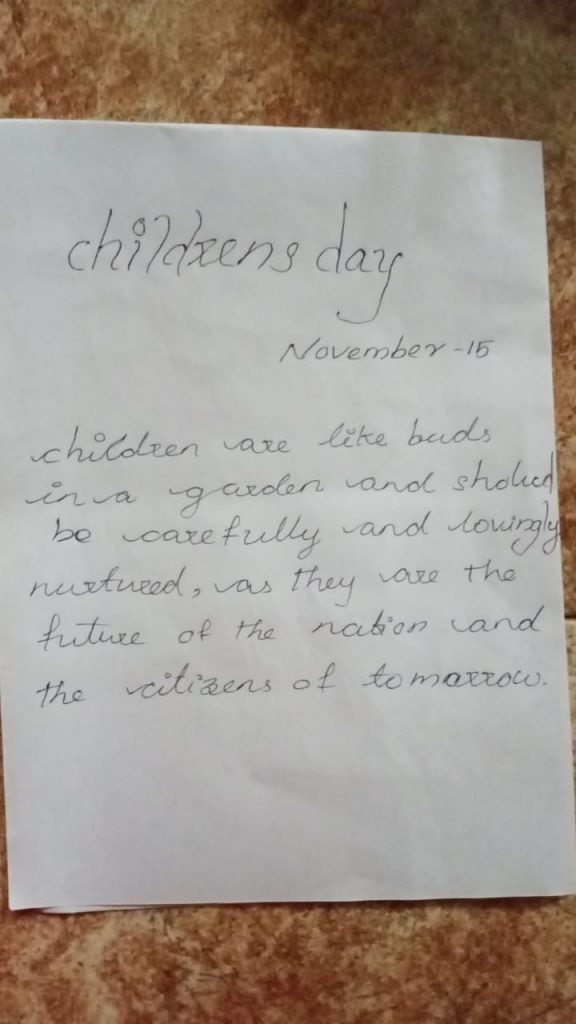 childrens day
November - 15
children are like buds
in a garden and sholud
be carefully and lovingly
nurtured, as they are the
future of the nation and
the citizens of tomarrow.